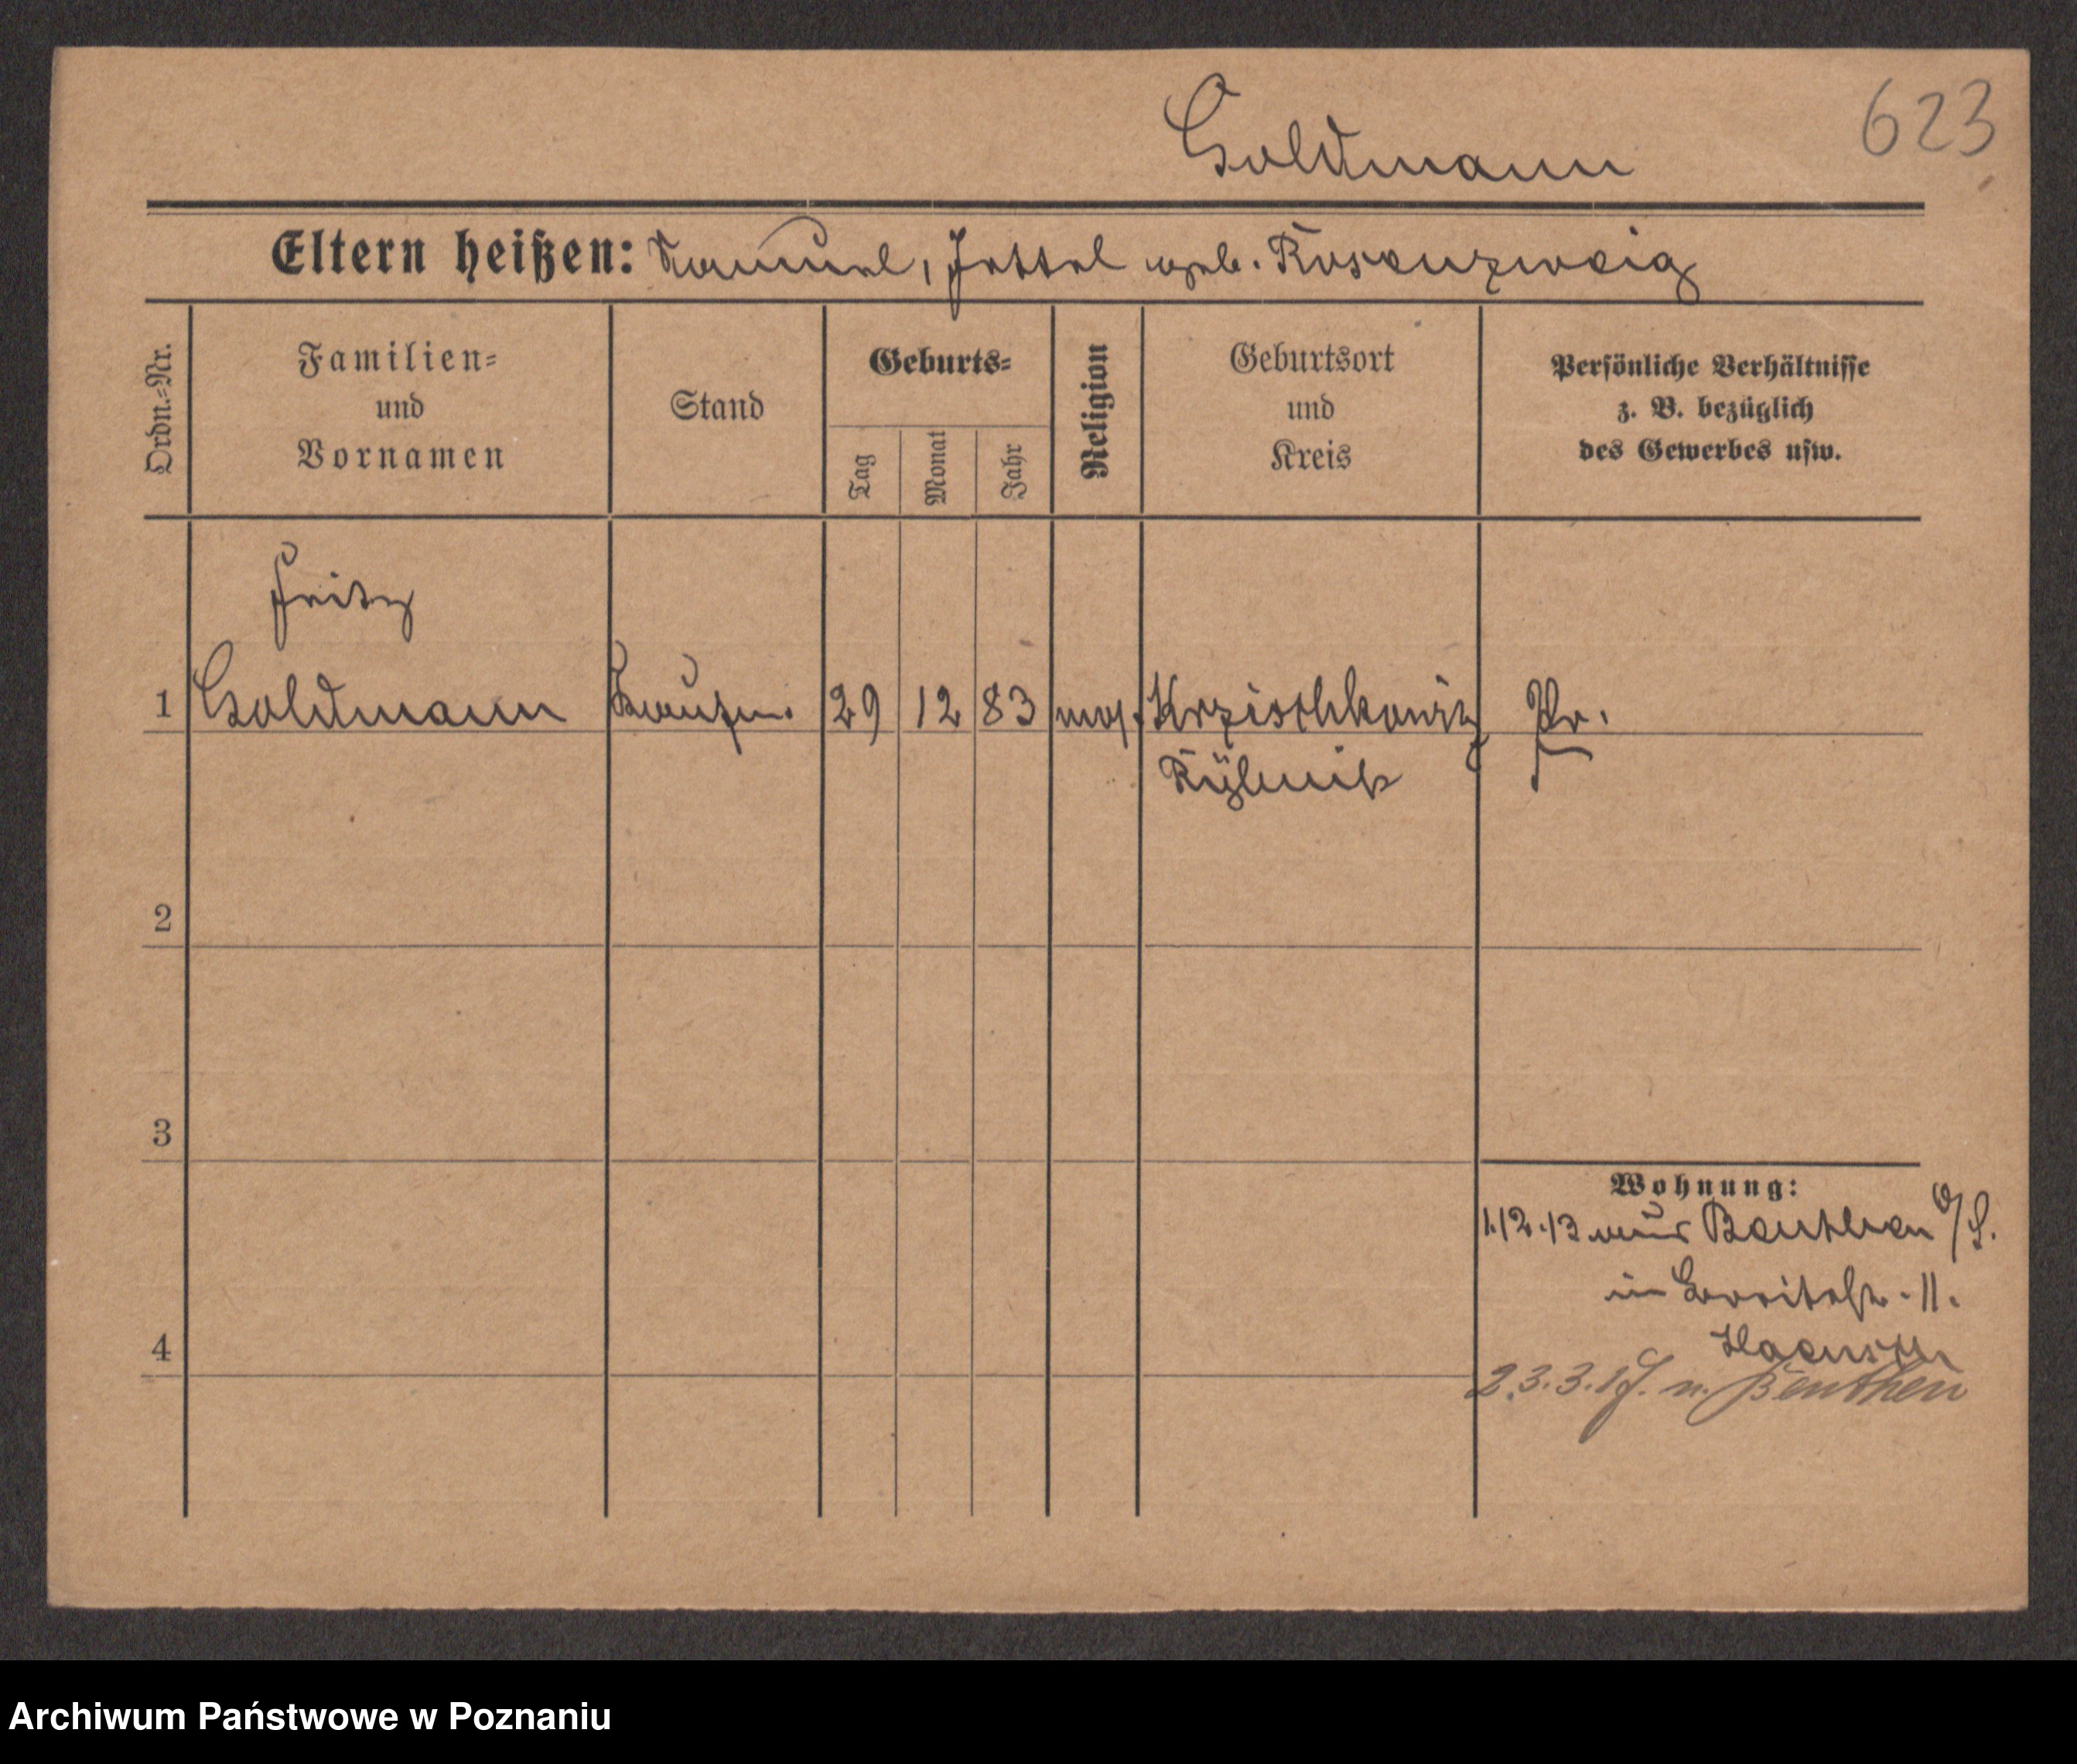 Goldmann
623
Eltern heißen: Samuel, Jettel geb. Rosenzweig
Ordn.=Nr.
Familien=
und
Vornamen
Stand
Geburts=
Tag
Monat
Jahr
Religion
Geburtsort
und
Kreis
Persönliche Verhältnisse
z. B. bezüglich
des Gewerbes usw.
Fritz
1 Goldmann Kaufm. 29 12 83 mos. Krzischkowitz Pr.
Rybnik
2
3
4
Wohnung:
1.12.13 aus Beuthen O/S.
in Breitestr. 11.
23.3.17. n. Beuthen
Archiwum Państwowe w Poznaniu